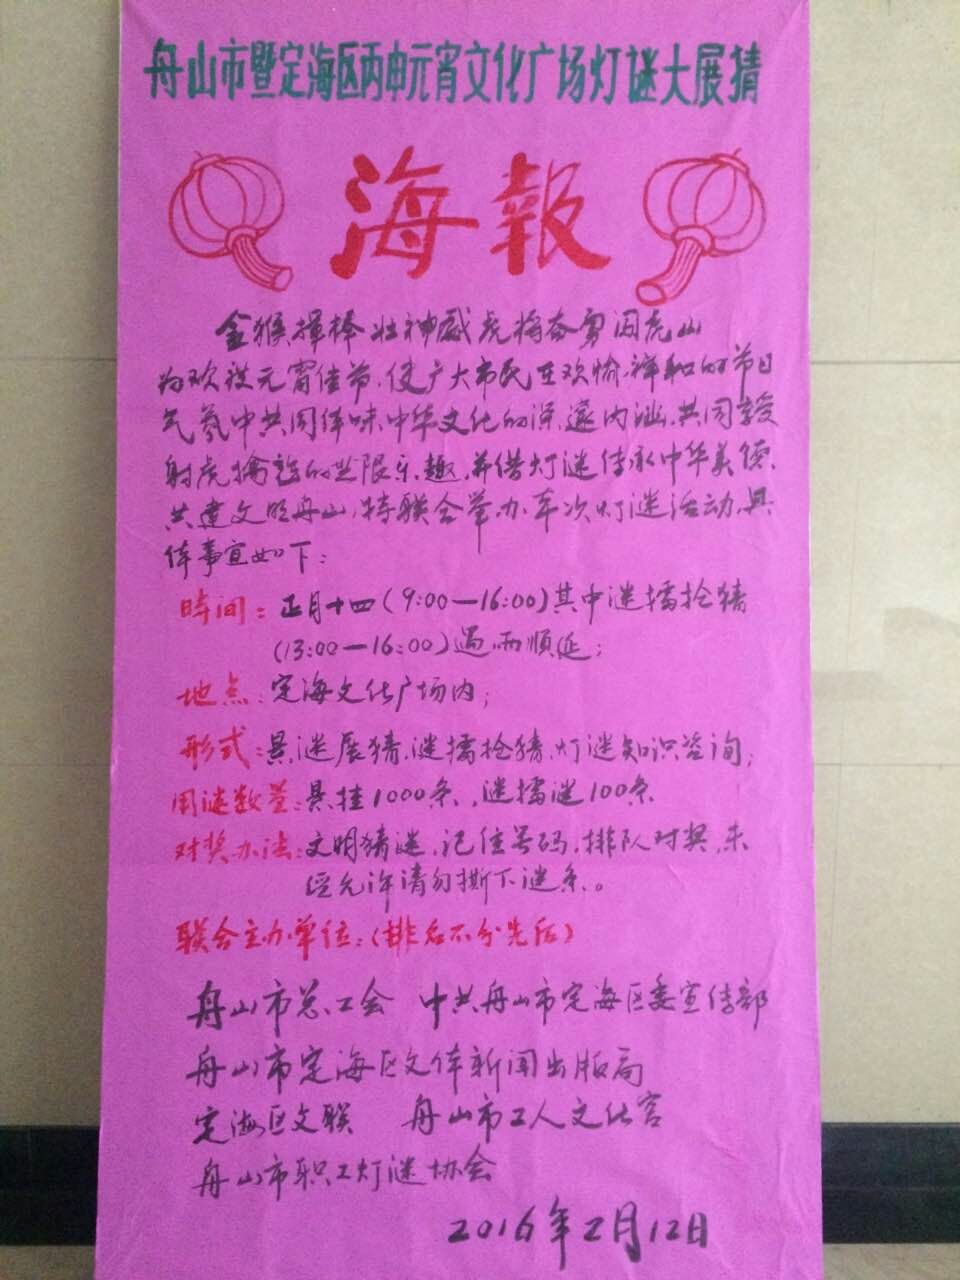 舟山市暨定海区丙申元宵文化广场灯谜大展猜
海報
金猴揮棒壮神威虎将奋勇闯虎山
为欢祝元宵佳节,使广大市民在欢愉,祥和的节日
气氛中共同体味中华文化的深邃内涵,共同享受
射虎擒谜的无限乐趣,并借灯谜传承中华美德,
共建文明舟山,特联合举办本次灯谜活动,具
体事宜如下:
時间:正月十四(9:00—16:00)其中谜擂抢猜
(13:00—16:00)遇雨順延;
地点:定海文化广场内;
形式:悬谜展猜,谜擂抢猜,灯谜知识咨询;
用谜数量:悬挂1000条,谜擂谜100条
对奖办法:文明猜谜,记住号码,排队对奖,未
经允许请勿撕下谜条。
联合主办单位:(排名不分先后)
舟山市总工会 中共舟山市定海区委宣传部
舟山市定海区文体新闻出版局
定海区文联 舟山市工人文化宫
舟山市职工灯谜协会
2016年2月12日